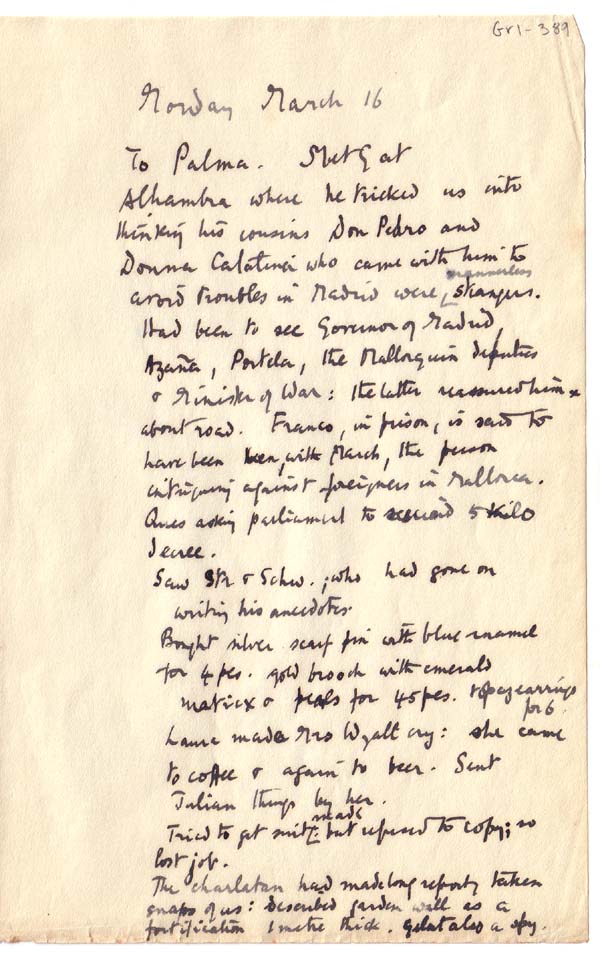 Gr1-389
Monday March 16
To Palma. Met G at
Alhambra where he tricked us into
thinking his cousins Don Pedro and
Donna Catalina who came with him to
avoid troubles in Madrid were mannerless strangers.
Had been to see Governor of Madrid,
Azaña, Portela, the Mallorquin deputies
& Minister of War: the latter reassured him
about road. Franco, in prison, is said to
have been, with March, the person
intriguing against foreigners in Mallorca.
asking parliament to 5 kilo
decree.
Saw & Schw.; who had gone on
writing his anecdotes.
Bought silver scarf pin with blue enamel
for 4 pes. gold brooch with emerald
matrix & pearls for 45 pes. topaz earrings
for 6.
Laura made Mrs Wyatt cry: she came
to coffee & again to beer. Sent
Julian things by her.
Tried to get suit made: but refused to copy; so
lost job.
The charlatan had made long report, taken
snaps of us: described garden wall as a
fortification 1 metre thick. Gelat also a spy.